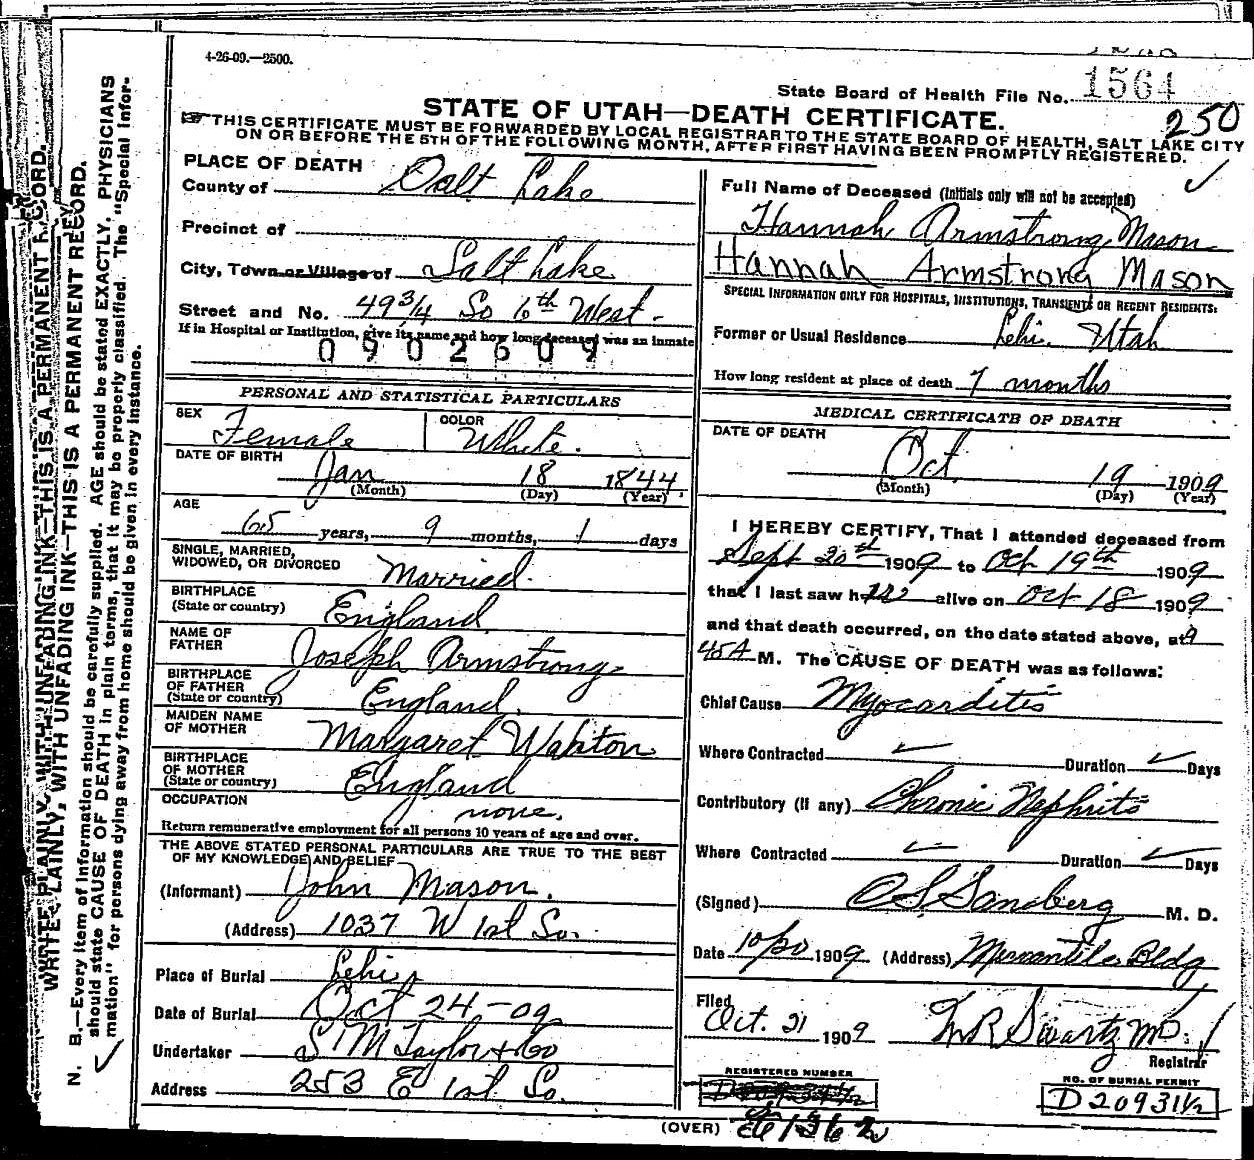 4-26-09.—2500.
State Board of Health File No. 1564
250
STATE OF UTAH—DEATH CERTIFICATE.
THIS CERTIFICATE MUST BE FORWARDED BY LOCAL REGISTRAR TO THE STATE BOARD OF HEALTH, SALT LAKE CITY
ON OR BEFORE THE 5TH OF THE FOLLOWING MONTH, AFTER FIRST HAVING BEEN PROMPTLY REGISTERED.
PLACE OF DEATH
County of Salt Lake
Precinct of
City, Town or Village of Salt Lake
Street and No. 49 3/4 So 6th West
If in Hospital or Institution, give its name and how long deceased was an inmate
0902609
PERSONAL AND STATISTICAL PARTICULARS
SEX Female COLOR White.
DATE OF BIRTH Jan 18 1844
(Month) (Day) (Year)
AGE
65 years, 9 months, 1 days
SINGLE, MARRIED,
WIDOWED, OR DIVORCED Married.
BIRTHPLACE
(State or country) England
NAME OF
FATHER Joseph Armstrong
BIRTHPLACE
OF FATHER
(State or country) England.
MAIDEN NAME
OF MOTHER Margaret
BIRTHPLACE
OF MOTHER
(State or country) England
OCCUPATION none.
Return remunerative employment for all persons 10 years of age and over.
THE ABOVE STATED PERSONAL PARTICULARS ARE TRUE TO THE BEST
OF MY KNOWLEDGE AND BELIEF
(Informant) John Mason.
(Address) 1037 W 1st So.
Place of Burial Lehi
Date of Burial Oct 24-09
Undertaker S M Taylor & Co
Address 253 E 1st So.
Full Name of Deceased (Initials only will not be accepted)
Hannah Armstrong Mason
Hannah Armstrong Mason
SPECIAL INFORMATION ONLY FOR HOSPITALS, INSTITUTIONS, TRANSIENTS OR RECENT RESIDENTS:
Former or Usual Residence Lehi, Utah
How long resident at place of death 7 months
MEDICAL CERTIFICATE OF DEATH
DATE OF DEATH
Oct 19 1909
(Month) (Day) (Year)
I HEREBY CERTIFY, That I attended deceased from
Sept 20th 1909 to Oct 19th 1909
that I last saw her alive on Oct 18 1909
and that death occurred, on the date stated above, at 9
45 A M. The CAUSE OF DEATH was as follows:
Chief Cause Myocarditis
Where Contracted Duration Days
Contributory (if any) Chronic Nephritis
Where Contracted Duration Days
(Signed) O S Sandberg M. D.
Date 10/20 1909 (Address) Mercantile Bldg
Filed
Oct. 21 1909 Swartz MD.
Registrar
REGISTERED NUMBER
NO. OF BURIAL PERMIT
D 20931½
(OVER)
WRITE PLAINLY, WITH UNFADING INK—THIS IS A PERMANENT RECORD.
N. B.—Every item of information should be carefully supplied. AGE should be stated EXACTLY. PHYSICIANS
should state CAUSE OF DEATH in plain terms, that it may be properly classified. The "Special Infor-
mation" for persons dying away from home should be given in every instance.